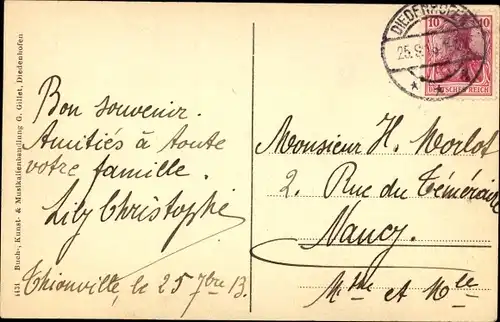 4431 Buch-, Kunst- & Musikalienhandlung G. Gillet, Diedenhofen
Bon souvenir.
Amitiés à toute
votre famille.
Lily Christophe
Thionville, le 25 7bre 13.
10 10
DEUTSCHES REICH
25.9.
Monsieur H. Morlot
2. Rue du Téméraire
Nancy.
Mthe et Mlle